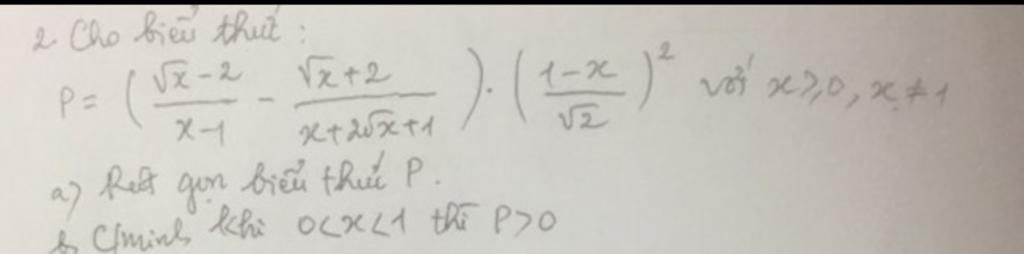 2. Cho biểu thức:
P = ( (√x - 2)/(x - 1) - (√x + 2)/(x + 2√x + 1) ) . ( (1 - x)/√2 )² với x ≥ 0, x ≠ 1
a) Rút gọn biểu thức P.
b) C/minh khi 0 < x < 1 thì P > 0